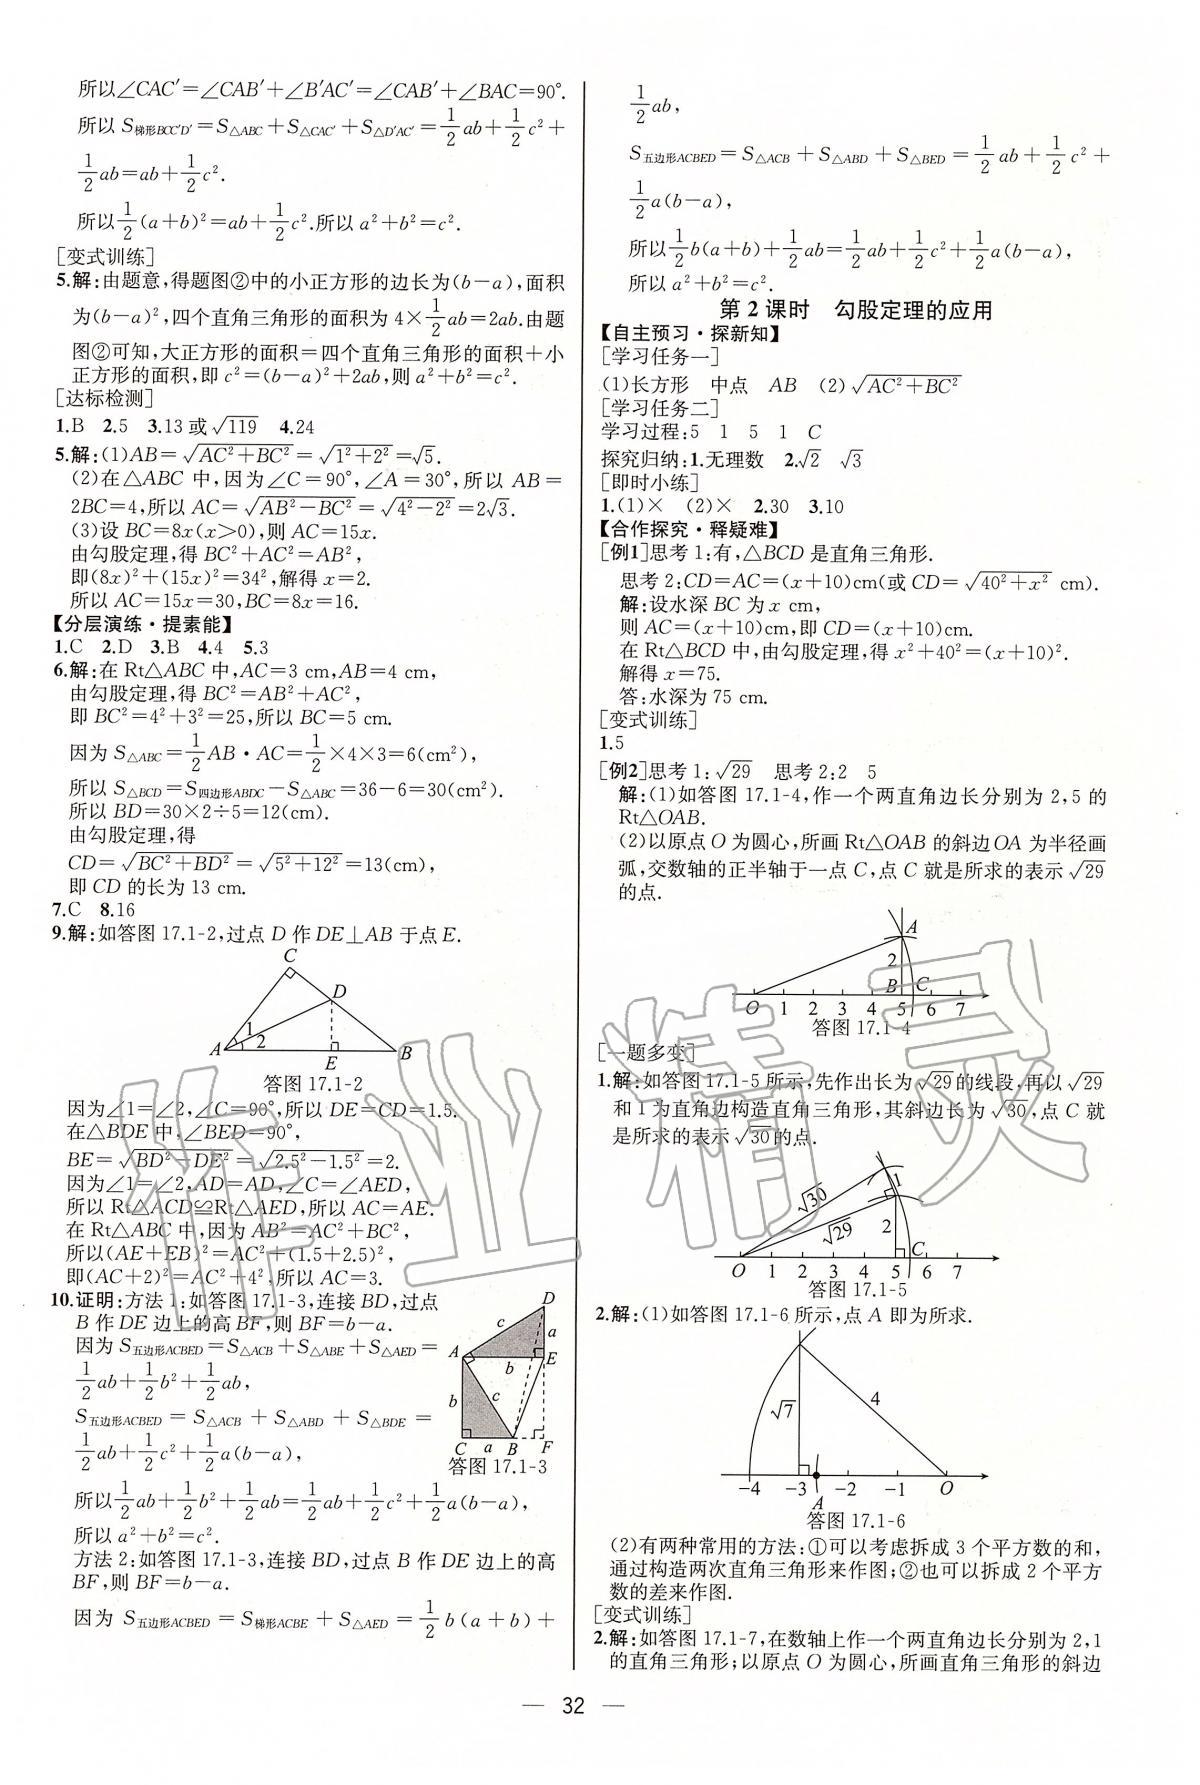 所以∠CAC′=∠CAB′+∠B′AC′=∠CAB′+∠BAC=90°.
所以 S梯形BCC′D′=S△ABC+S△CAC′+S△D′AC′=1/2ab+1/2c²+
1/2ab=ab+1/2c².
所以1/2(a+b)²=ab+1/2c².所以 a²+b²=c².
[变式训练]
5.解:由题意,得题图②中的小正方形的边长为(b-a),面积
为(b-a)²,四个直角三角形的面积为 4×1/2ab=2ab.由题
图②可知,大正方形的面积=四个直角三角形的面积+小
正方形的面积,即 c²=(b-a)²+2ab,则 a²+b²=c².
[达标检测]
1.B 2.5 3.13 或√119 4.24
5.解:(1)AB=√AC²+BC²=√1²+2²=√5.
(2)在△ABC 中,因为∠C=90°,∠A=30°,所以 AB=
2BC=4,所以 AC=√AB²-BC²=√4²-2²=2√3.
(3)设 BC=8x(x>0),则 AC=15x.
由勾股定理,得 BC²+AC²=AB²,
即(8x)²+(15x)²=34²,解得 x=2.
所以 AC=15x=30,BC=8x=16.
【分层演练·提素能】
1.C 2.D 3.B 4.4 5.3
6.解:在 Rt△ABC 中,AC=3 cm,AB=4 cm,
由勾股定理,得 BC²=AB²+AC²,
即 BC²=4²+3²=25,所以 BC=5 cm.
因为 S△ABC=1/2AB·AC=1/2×4×3=6(cm²),
所以 S△BCD=S四边形ABDC-S△ABC=36-6=30(cm²).
所以 BD=30×2÷5=12(cm).
由勾股定理,得
CD=√BC²+BD²=√5²+12²=13(cm),
即 CD 的长为 13 cm.
7.C 8.16
9.解:如答图 17.1-2,过点 D 作 DE⊥AB 于点 E.
C
D
1
2
A
E
B
答图 17.1-2
因为∠1=∠2,∠C=90°,所以 DE=CD=1.5.
在△BDE 中,∠BED=90°,
BE=√BD²-DE²=√2.5²-1.5²=2.
因为∠1=∠2,AD=AD,∠C=∠AED,
所以 Rt△ACD≌Rt△AED,所以 AC=AE.
在 Rt△ABC 中,因为 AB²=AC²+BC²,
所以(AE+EB)²=AC²+(1.5+2.5)²,
即(AC+2)²=AC²+4²,所以 AC=3.
10.证明:方法 1:如答图 17.1-3,连接 BD,过点
B 作 DE 边上的高 BF,则 BF=b-a.
因为 S五边形ACBED=S△ACB+S△ABE+S△AED=
1/2ab+1/2b²+1/2ab,
S五边形ACBED=S△ACB+S△ABD+S△BDE=
1/2ab+1/2c²+1/2a(b-a),
D
c
a
A
b
E
b
c
C a B F
答图 17.1-3
所以1/2ab+1/2b²+1/2ab=1/2ab+1/2c²+1/2a(b-a),
所以 a²+b²=c².
方法 2:如答图 17.1-3,连接 BD,过点 B 作 DE 边上的高
BF,则 BF=b-a.
因为 S五边形ACBED=S梯形ACBE+S△AED=1/2b(a+b)+
1/2ab,
S五边形ACBED=S△ACB+S△ABD+S△BED=1/2ab+1/2c²+
1/2a(b-a),
所以1/2b(a+b)+1/2ab=1/2ab+1/2c²+1/2a(b-a),
所以 a²+b²=c².
第 2 课时 勾股定理的应用
【自主预习·探新知】
[学习任务一]
(1)长方形 中点 AB (2)√AC²+BC²
[学习任务二]
学习过程:5 1 5 1 C
探究归纳:1.无理数 2.√2 √3
[即时小练]
1.(1)× (2)× 2.30 3.10
【合作探究·释疑难】
[例1]思考 1:有,△BCD 是直角三角形.
思考 2:CD=AC=(x+10)cm(或 CD=√40²+x² cm).
解:设水深 BC 为 x cm,
则 AC=(x+10)cm,即 CD=(x+10)cm.
在 Rt△BCD 中,由勾股定理,得 x²+40²=(x+10)².
解得 x=75.
答:水深为 75 cm.
[变式训练]
1.5
[例2]思考 1:√29 思考 2:2 5
解:(1)如答图 17.1-4,作一个两直角边长分别为 2,5 的
Rt△OAB.
(2)以原点 O 为圆心,所画 Rt△OAB 的斜边 OA 为半径画
弧,交数轴的正半轴于一点 C,点 C 就是所求的表示 √29
的点.
A
2
B C
O 1 2 3 4 5 6 7
答图 17.1-4
[一题多变]
1.解:如答图 17.1-5 所示,先作出长为 √29 的线段,再以 √29
和 1 为直角边构造直角三角形,其斜边长为 √30,点 C 就
是所求的表示 √30 的点.
√30
1
√29
2
C
O 1 2 3 4 5 6 7
答图 17.1-5
2.解:(1)如答图 17.1-6 所示,点 A 即为所求.
√7
4
-4 -3 -2 -1 O
A
答图 17.1-6
(2)有两种常用的方法:①可以考虑拆成 3 个平方数的和,
通过构造两次直角三角形来作图;②也可以拆成 2 个平方
数的差来作图.
[变式训练]
2.解:如答图 17.1-7,在数轴上作一个两直角边长分别为 2,1
的直角三角形;以原点 O 为圆心,所画直角三角形的斜边
— 32 —
作业精灵